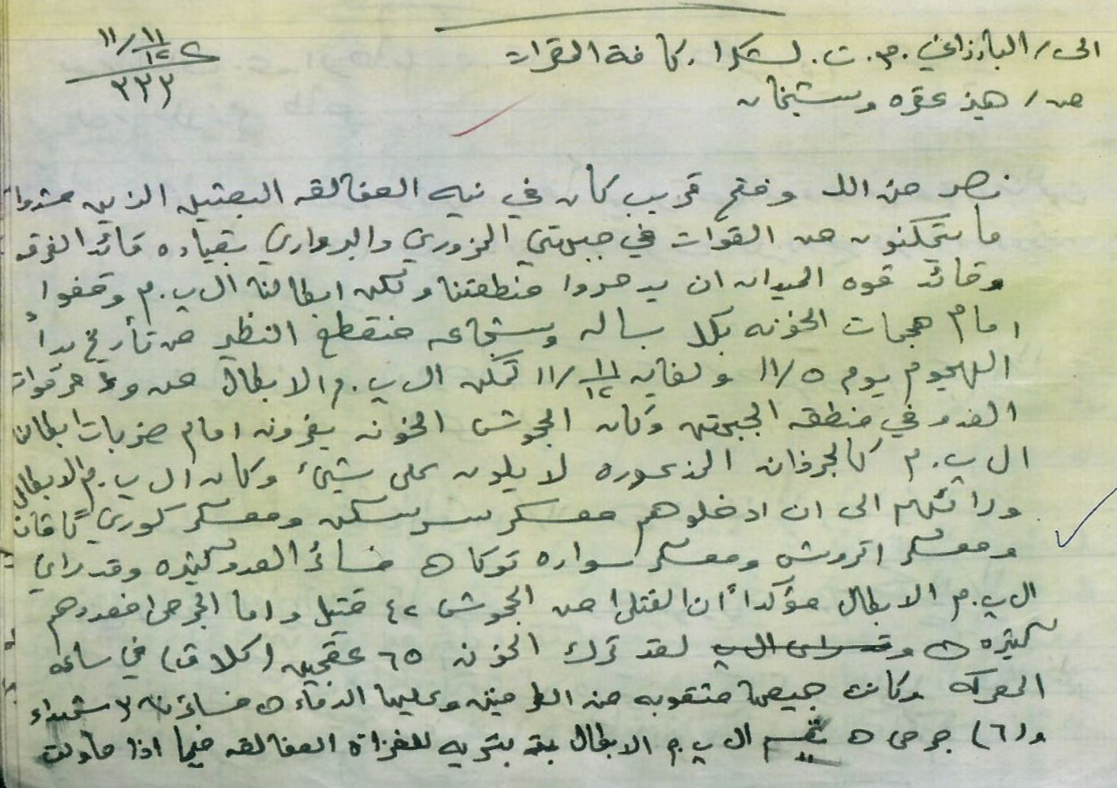 الى/ البارزاني . م . ت . لشكرا . كافة المقرات
١١/ ١١/١٢ ع
٣٢٢
من / هيز عقره وشيخان
نصر من الله وفتح قريب كان في نيه العفالقه البعثيين الذين حشدوا
ما يتمكنون من القوات في جبهتي المزوري والبرواري بقياده قائد الفرقه
وقائد قوه الميدان ان يدحروا منطقتنا ولكن ابطالنا ال ب . م وقفوا
امام هجمات الخونه بكل بساله وشجاعه منقطع النظير من تأريخ بدأ
الهجوم يوم ١١/٥ ولغايه ١١/ ١١/١٢ تمكن ال ب . م الابطال من قوات
العدو في منطقه الجبهتين وكان الجحوش الخونه يفرون امام ضربات ابطال
ال ب . م كالجرذان المذعوره لا يلون على شيئ وكان ال ب . م الابطال
ورائهم الى ان ادخلوهم معسكر سرسنك ومعسكر كوري گاڤانا
ومعسكر اتروش ومعسكر سواره توكا ه خسائر العدو كثيره وقد رأى
ال ب . م الابطال مؤكداً أن القتلى من الجحوش ٤٢ قتيل واما الجرحى فعددهم
كثيره ه لقد ترك الخونه ٦٥ عقجين (كلاق) في ساحه
المعركه وكانت جميعها مثقوبه من الطرفين وعليها الدماء ه خسائرنا ٧ شهداء
و (٦) جرحى ه يقسم ال ب . م الابطال بتربه للغزاة العفالقه فيما اذا حاولت